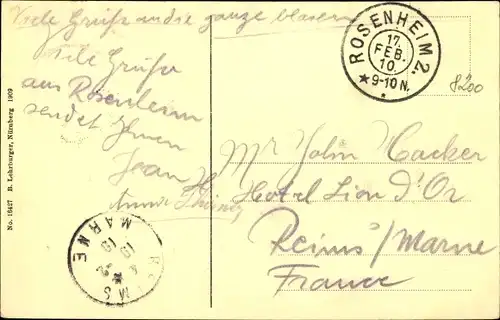 Viele Grüße an die ganze
Viele Grüße
aus Rosenheim
sendet Ihnen
Jean
ROSENHEIM 2.
17.
FEB.
10.
9-10 N.
8200
Mr John Hacker
Hotel Lion d'Or
Reims/Marne
France
REIMS
MARNE
No. 16427 B. Lehrburger, Nürnberg 1909